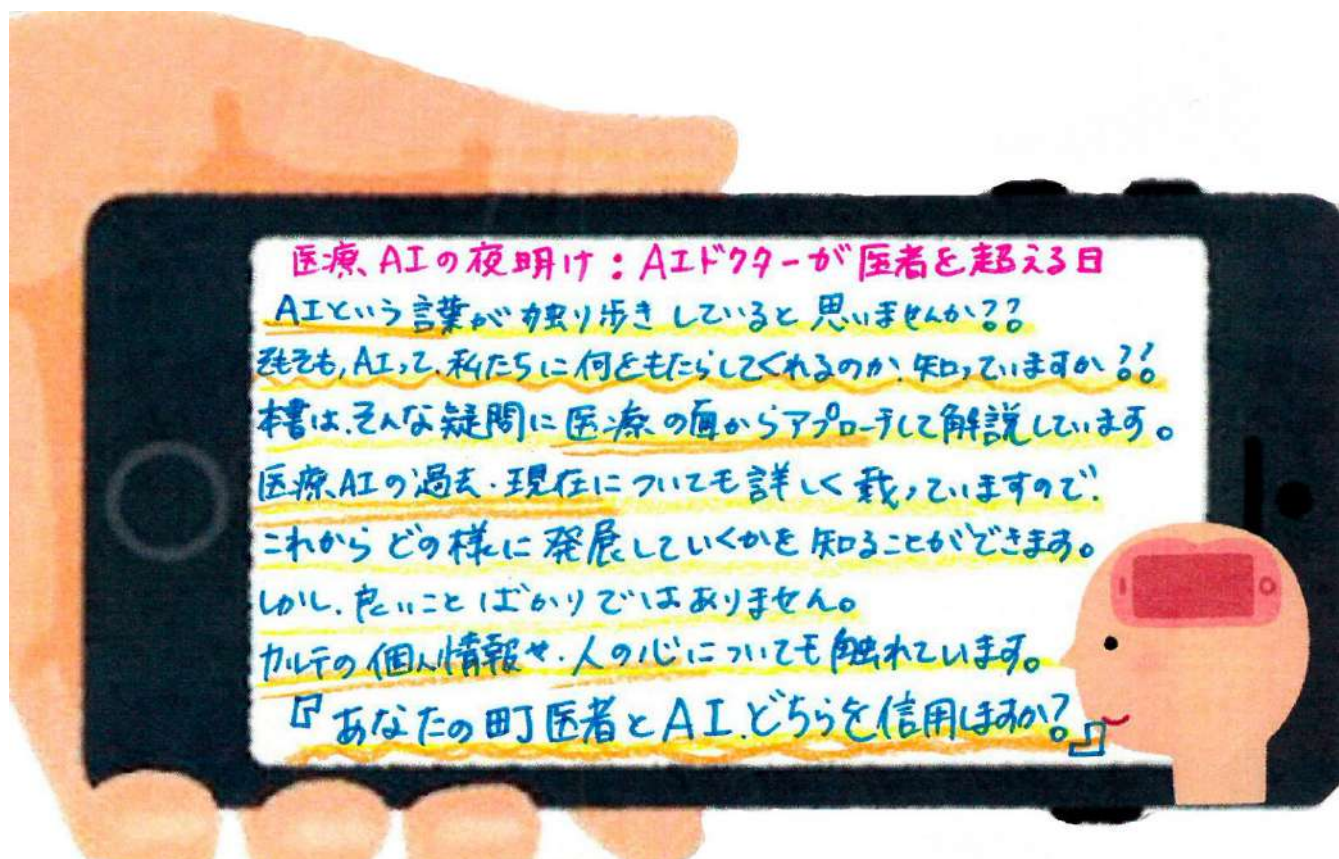 医療AIの夜明け：AIドクターが医者を超える日
AIという言葉が独り歩きしていると思いませんか??
そもそも,AIって、私たちに何をもたらしてくれるのか、知っていますか??
本書は、そんな疑問に医療の面からアプローチして解説しています。
医療AIの過去・現在についても詳しく載っていますので、
これからどの様に発展していくかを知ることができます。
しかし、良いことばかりではありません。
カルテの個人情報や、人の心についても触れています。
『あなたの町医者とAI、どちらを信用しますか?』